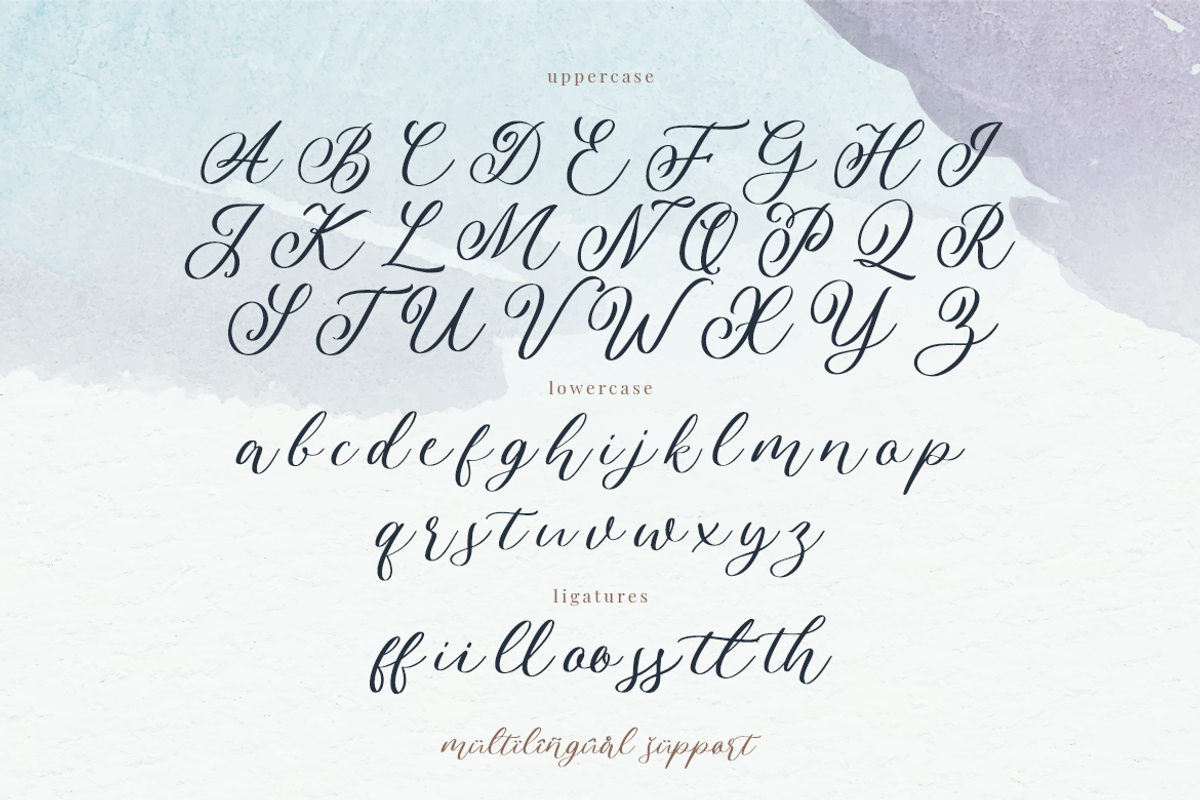 uppercase
A B C D E F G H I
J K L M N O P Q R
S T U V W X Y Z
lowercase
a b c d e f g h i j k l m n o p
q r s t u v w x y z
ligatures
ff ii ll oo ss tt th
mültïlîñgûål šüppørt